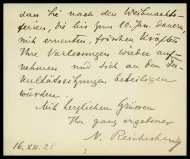 dass Sie nach den Weihnachts-
ferien, die bis zum 10. Jan. dauern,
mit erneuten, frischen Kräften
Ihre Vorlesungen wieder auf-
nehmen und sich an den Fa-
kultätssitzungen beteiligen
würden.
Mit herzlichen Grüssen
Ihr ganz ergebener
N. Reichesberg
16. XII. 21